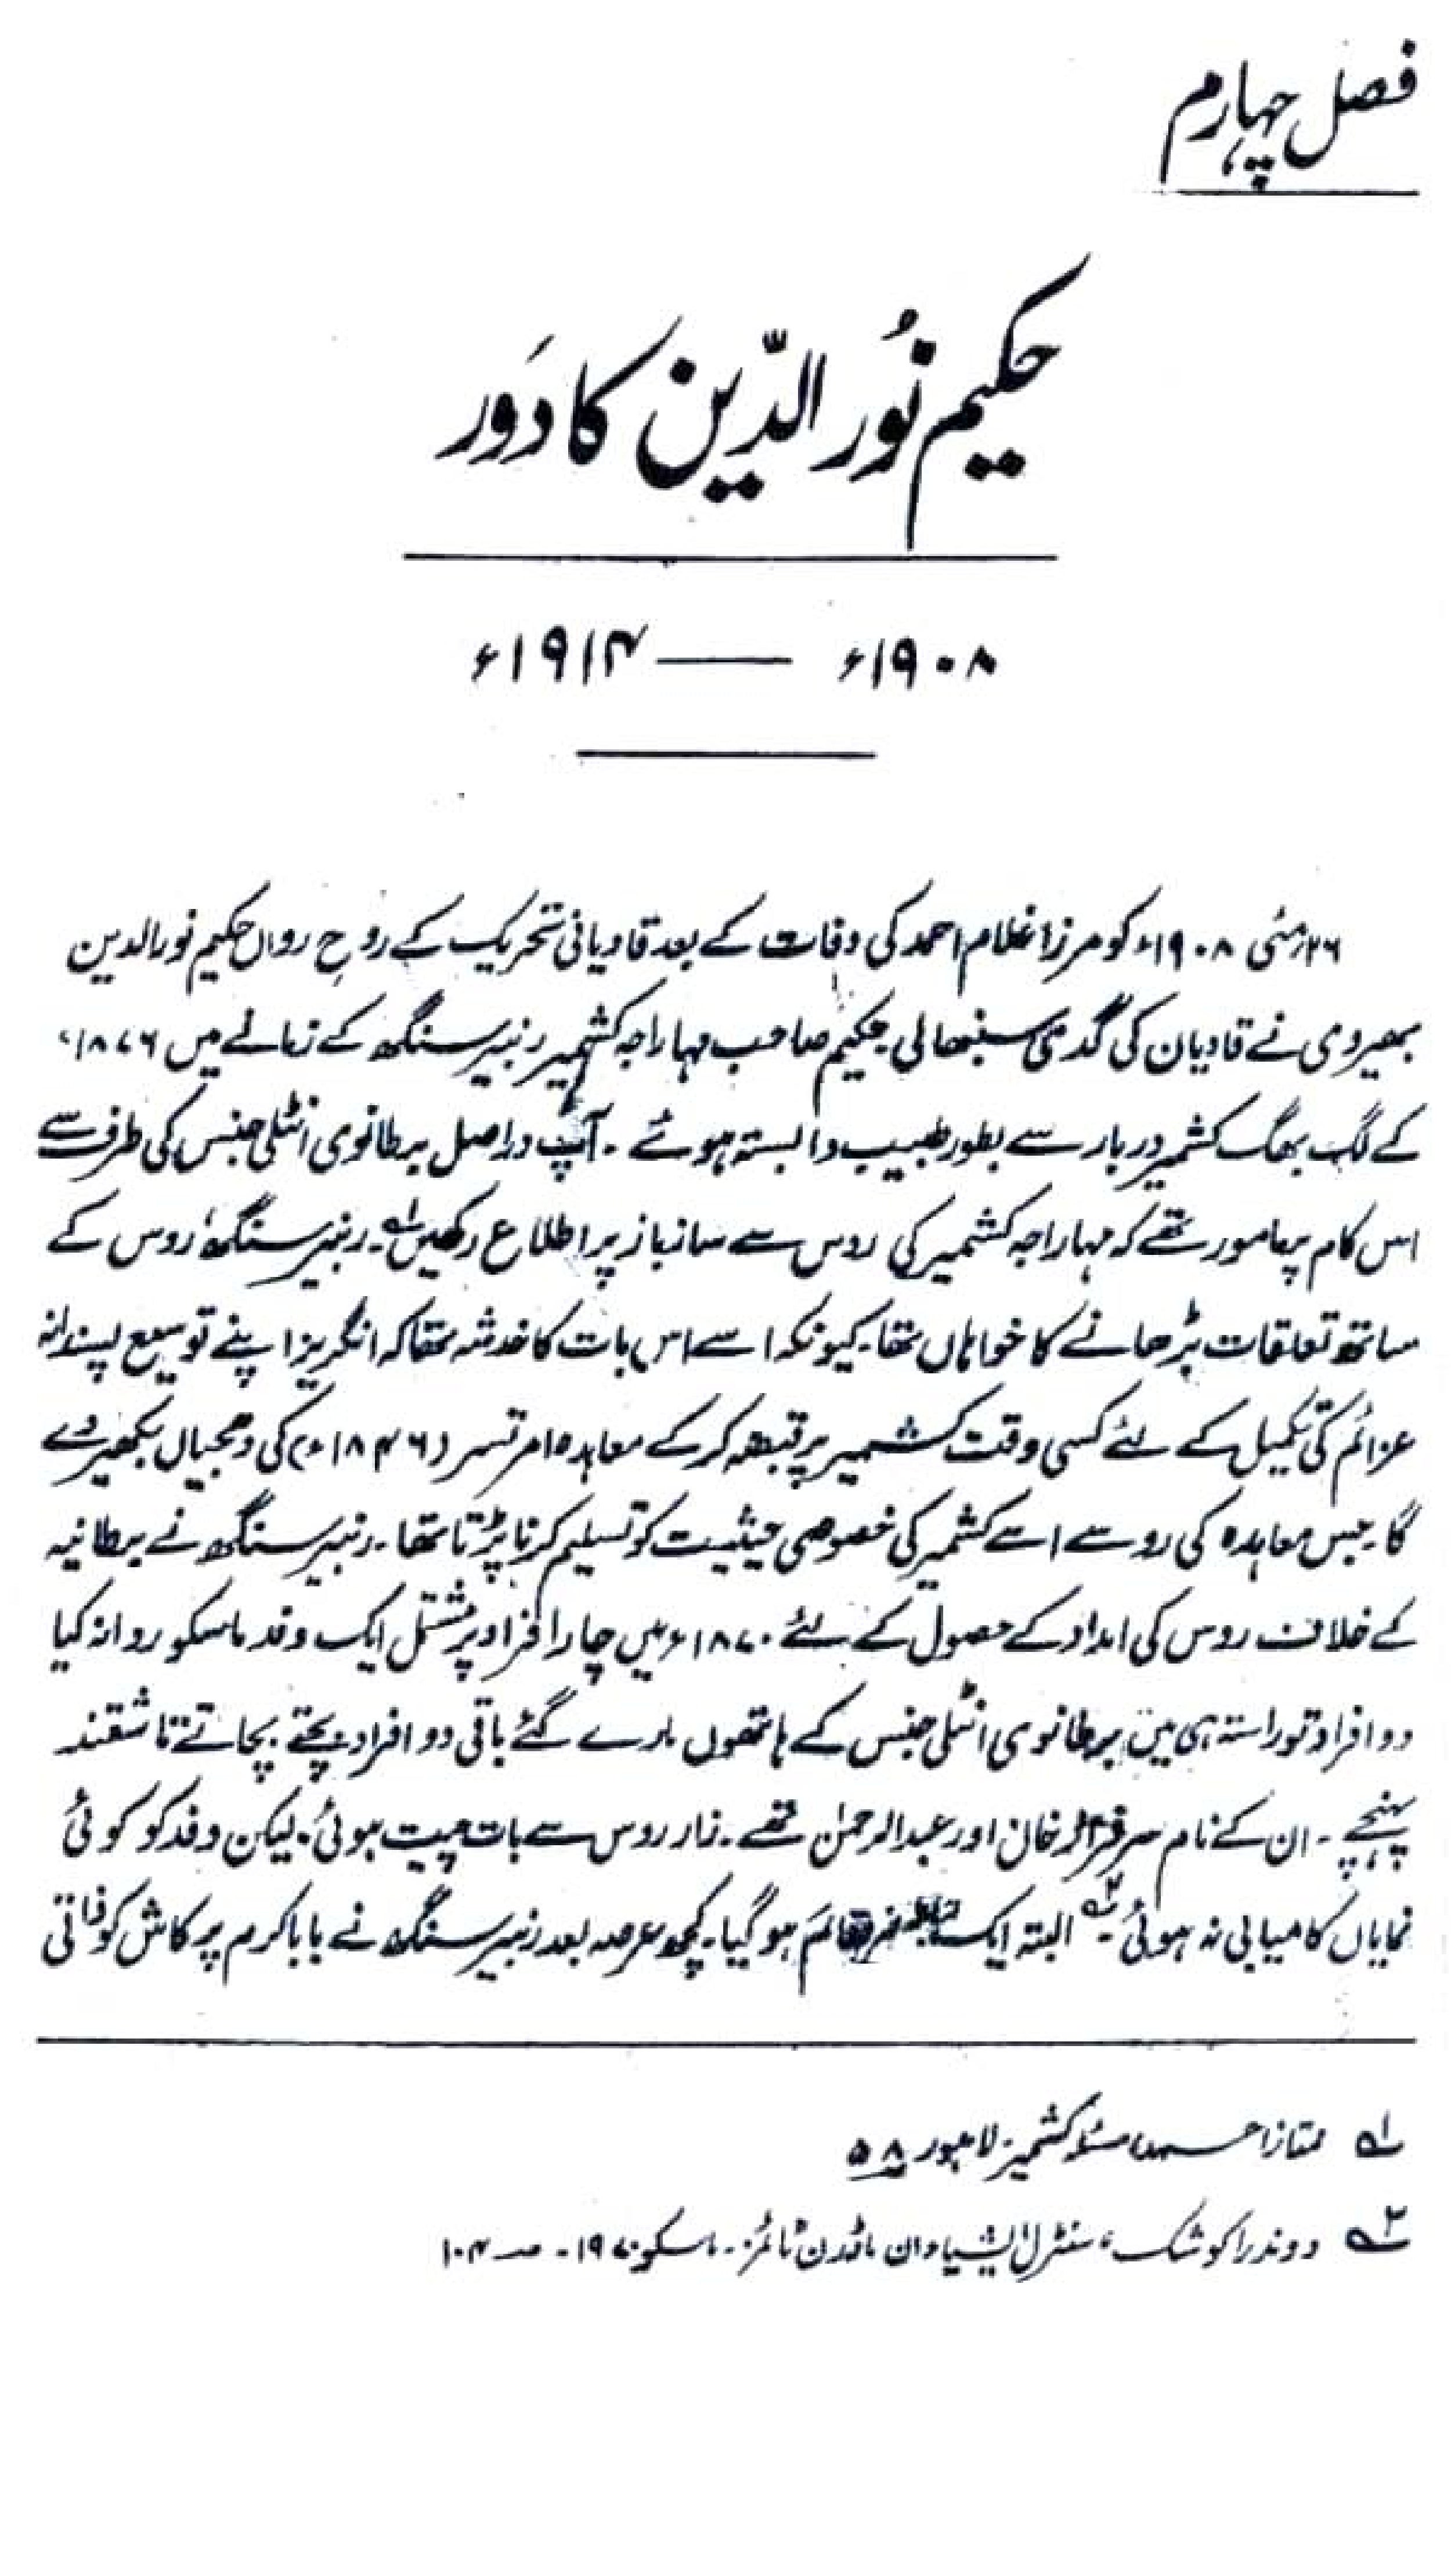 فصل چہارم
حکیم نُور الدّین کا دَور
۱۹۰۸ء — ۱۹۱۴ء
۲۶ مئی ۱۹۰۸ء کو مرزا غلام احمد کی وفات کے بعد قادیانی تحریک کے روحِ رواں حکیم نور الدین
بھیروی نے قادیان کی گدی سنبھالی۔ حکیم صاحب مہاراجہ کشمیر رنبیر سنگھ کے زمانے میں ۱۸۷۶ء
کے لگ بھگ کشمیر دربار سے بطور طبیب وابستہ ہوئے۔ آپ دراصل برطانوی انٹلی جنس کی طرف سے
اس کام پر مامور تھے کہ مہاراجہ کشمیر کی روس سے ساز باز پر اطلاع رکھیں۔ ۱؎ رنبیر سنگھ روس کے
ساتھ تعلقات بڑھانے کا خواہاں تھا۔ کیونکہ اسے اس بات کا خدشہ تھا کہ انگریز اپنے توسیع پسندانہ
عزائم کی تکمیل کے لئے کسی وقت کشمیر پر قبضہ کر کے معاہدہ امرتسر (۱۸۴۶ء) کی دھجیاں بکھیر دے
گا۔ جس معاہدہ کی رو سے اسے کشمیر کی خصوصی حیثیت کو تسلیم کرنا پڑتا تھا۔ رنبیر سنگھ نے برطانیہ
کے خلاف روس کی امداد کے حصول کے لئے ۱۸۷۰ء میں چار افراد پر مشتمل ایک وفد ماسکو روانہ کیا
دو افراد تو راستہ ہی میں برطانوی انٹلی جنس کے ہاتھوں مارے گئے باقی دو افراد بچتے بچاتے تاشقند
پہنچے۔ ان کے نام سرفراز خان اور عبدالرحمٰن تھے۔ زار روس سے بات چیت ہوئی۔ لیکن وفد کو کوئی
نمایاں کامیابی نہ ہوئی۔ ۲؎ البتہ ایک رابطہ ضرور قائم ہو گیا۔ کچھ عرصہ بعد رنبیر سنگھ نے بابا کرم پرکاش کو ذاتی
۱؎ ممتاز احمد، مسئلہ کشمیر۔ لاہور ۵۸
۲؎ دوندرا کوشک، سنٹرل ایشیا ان ماڈرن ٹائمز۔ ماسکو ۱۹۷۰۔ صہ ۱۰۴